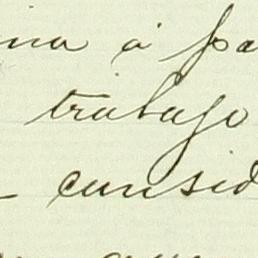 ina á pa
trabajo
consid